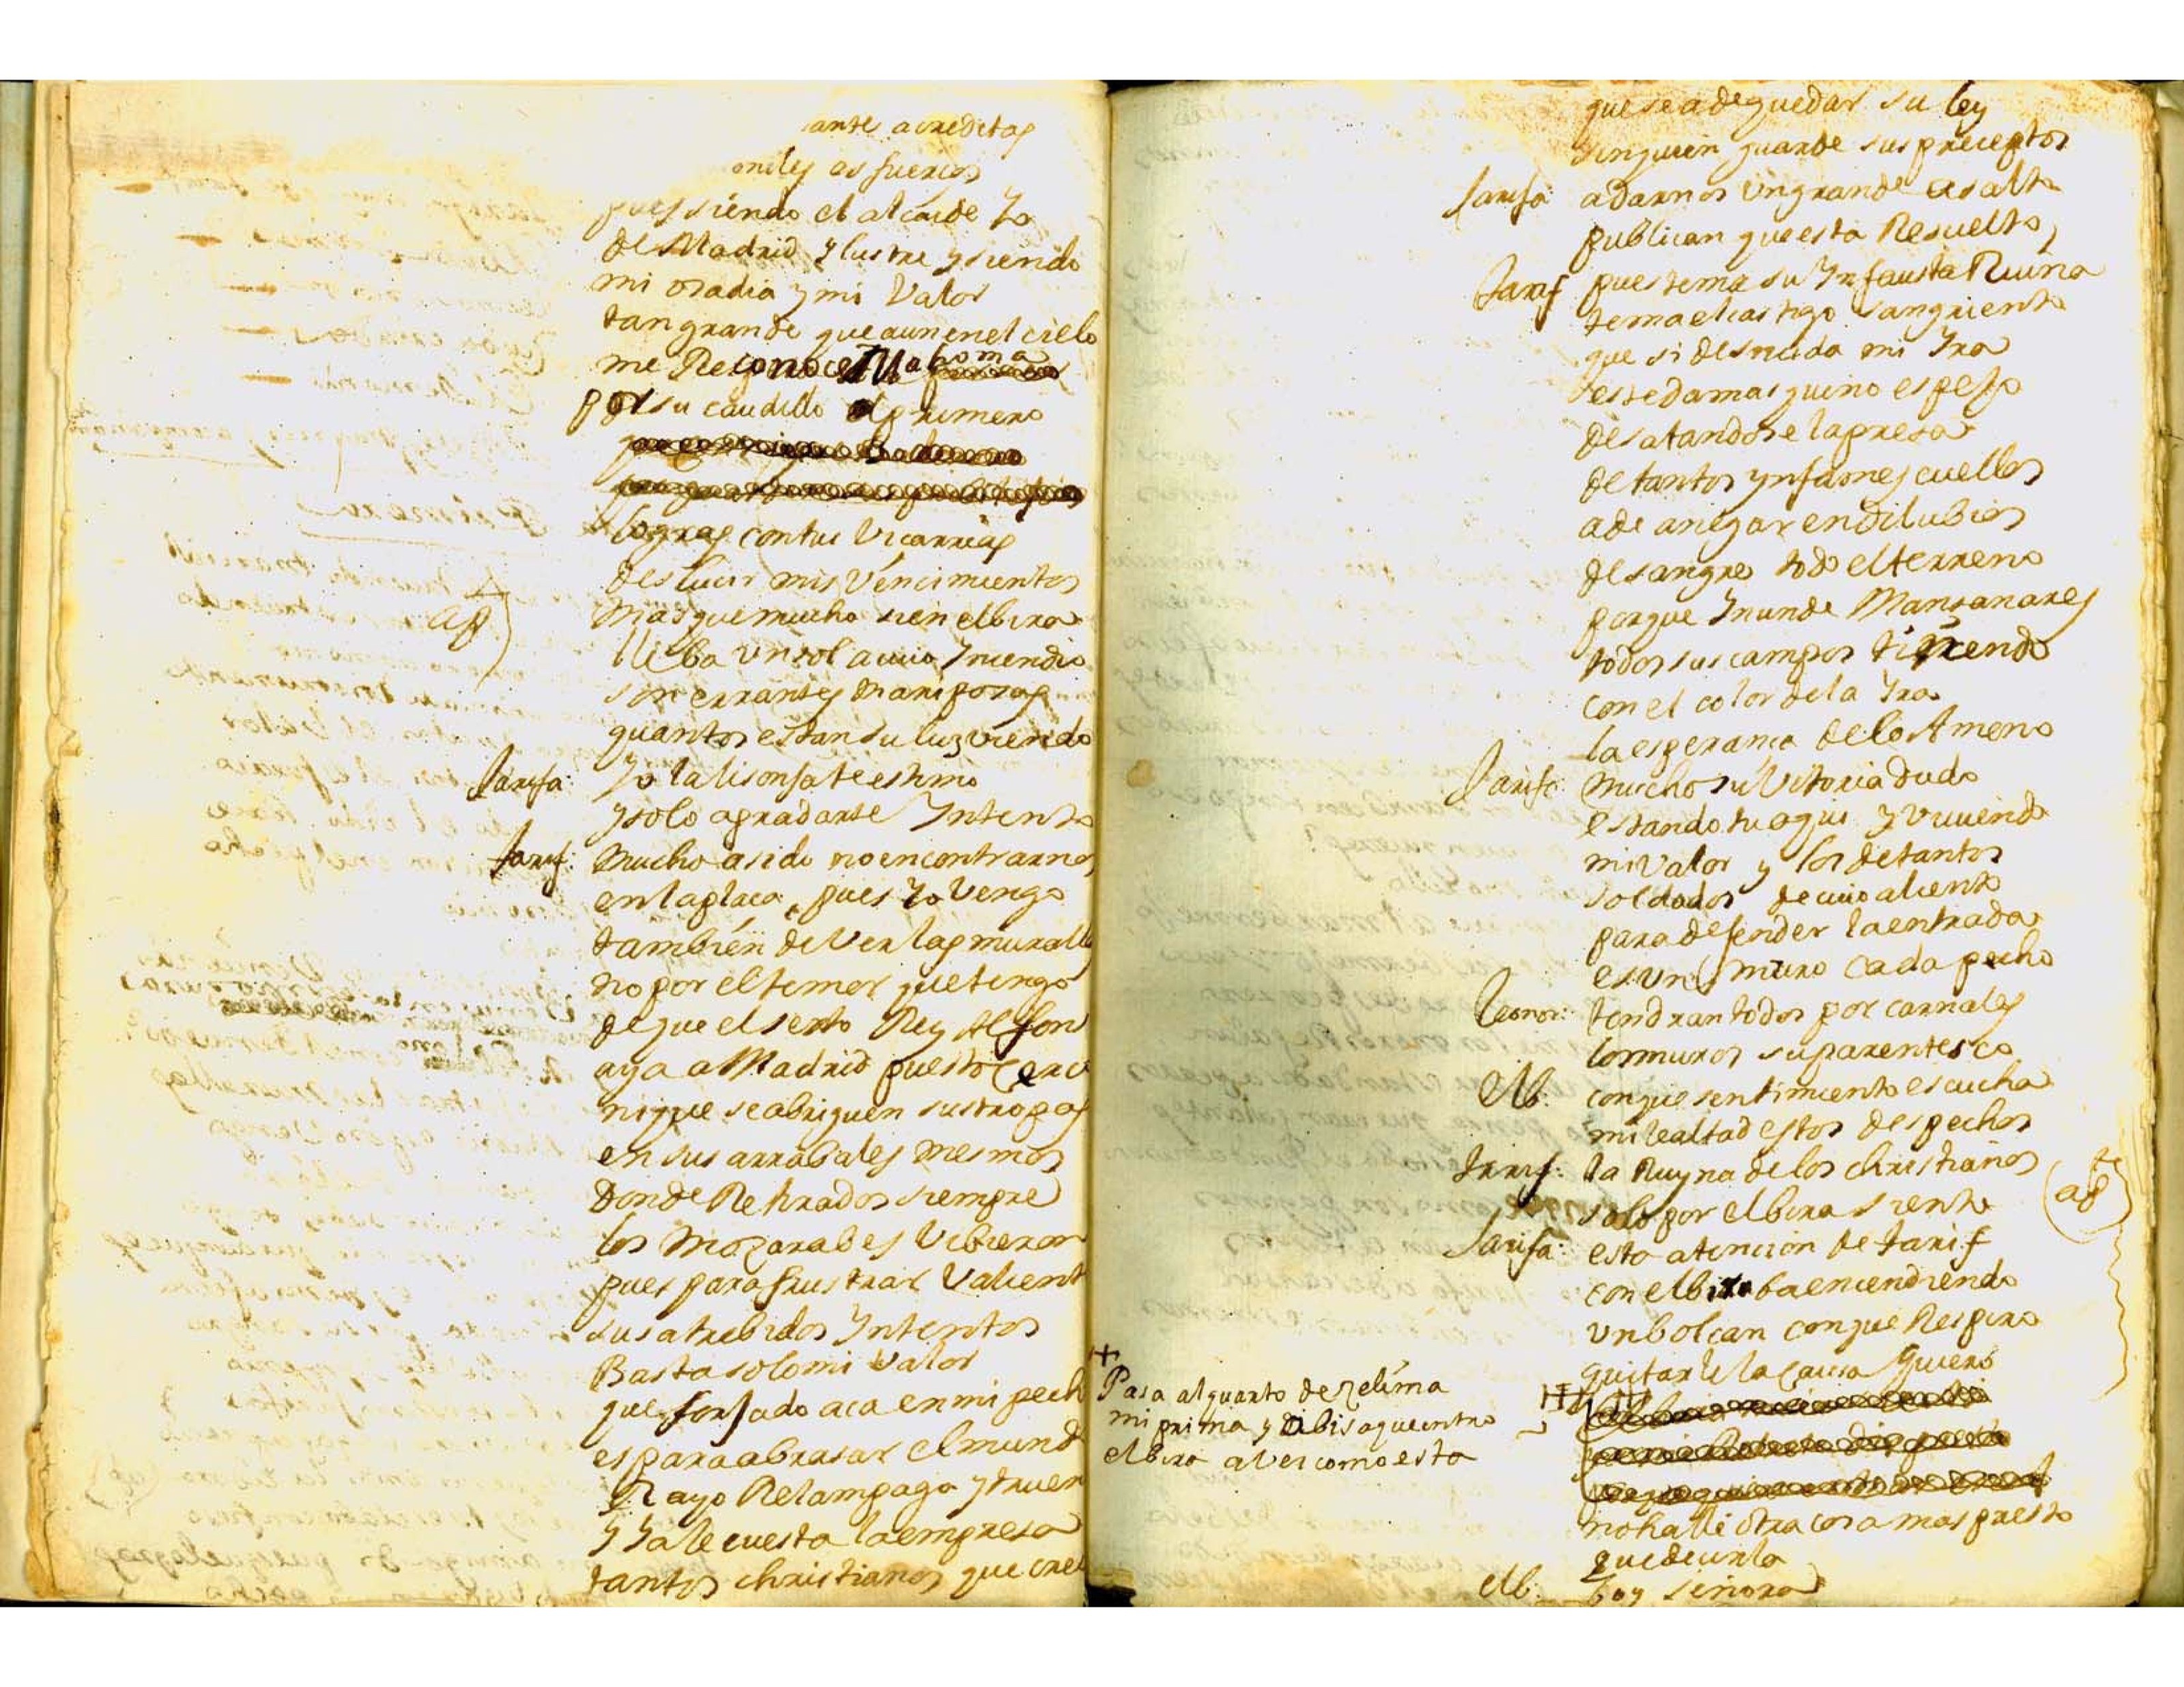 ante acreditas
pues siendo el alcaide Yo
de Madrid Ylustre y siendo
mi osadia y mi Valor
tan grande que aun en el cielo
me Reconoce Mahoma
por su caudillo el primero
logras con tus Vicarrias
deslucir mis Vencimientos
mas que mucho si en elbira
lleba un sol a cuio Yncendio
son errantes mariposas
quantos estan su luz viendo
Jarifa: Yo la lisonja te estimo
y solo agradarte Yntento
tarif: mucho a sido no encontrarnos
en la plaça, pues Yo Vengo
tambien de Ver las murall
no por el temor que tengo
de que el sexto Rey Alfon
aya a Madrid puesto Cerc
ni que se abriguen sus tropas
en sus arrabales mesmos
Donde Retirados siempre
los Mozarabes Vibieron
pues para frustrar Valient
sus atrebidos Yntentos
Basta solo mi Valor
que forjado aca en mi pech
es para abrasar el mund
Rayo Relampago y truen
Y Ya le cuesta la empresa
tantos christianos que cre
a8
que se a de quedar su ley
sin quien guarde sus preceptos
Jarifa: a darnos un grande asalto
publican que esta Resuelto,
tarif pues tema su Ynfausta Ruina
tema el castigo sangriento
que si desnuda mi Yra
este damasquino espejo
desatandose la presa
de tantos ynfames cuellos
a de anegar en dilubios
de sangre todo el terreno
porque Ynunde Mansanares
todos sus campos tiñendo
con el color de la Yra
la esperança de lo Ameno
Jarifa: mucho su Vitoria dudo
estando tu aqui y viviendo
mi Valor y los de tantos
soldados de cuio aliento
para defender la entrada
es un muro cada pecho
Leonor: tendran todos por carnales
los muros su parentesco
Elb: con que sentimiento escucha
mi lealtad estos despechos
tarif: la Ruyna de los christianos
solo por elbira siento
Jarifa: esta atencion de tarif
con elbira ba encendiendo
un bolcan con que Respiro
quitarle la causa quiero
no halle otra cosa mas presto
que decirla
elb: Boy señora
+
Pasa al quarto de zelima
mi prima y dibis a que entro
elbira a ver como esta